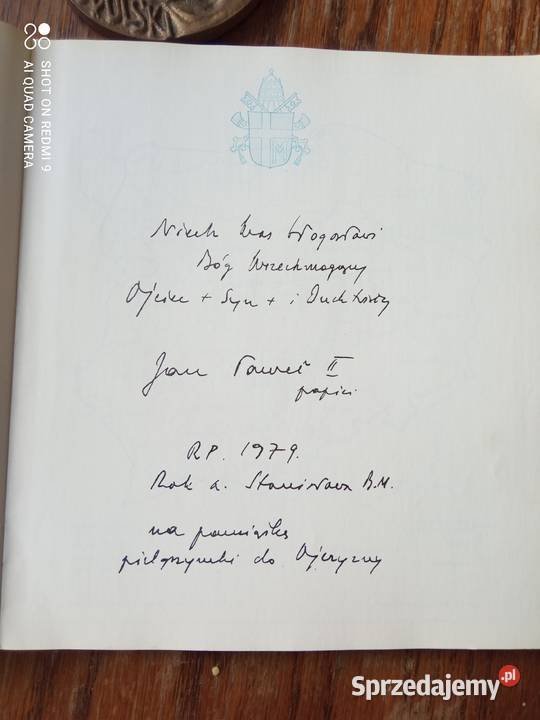 PULSKI
SHOT ON REDMI 9
AI QUAD CAMERA
Niech Was błogosławi
Bóg Wszechmogący
Ojciec + Syn + i Duch Święty
Jan Paweł II
papież
R.P. 1979.
Rok ś. Stanisława B.M.
na pamiątkę
pielgrzymki do Ojczyzny
Sprzedajemy.pl